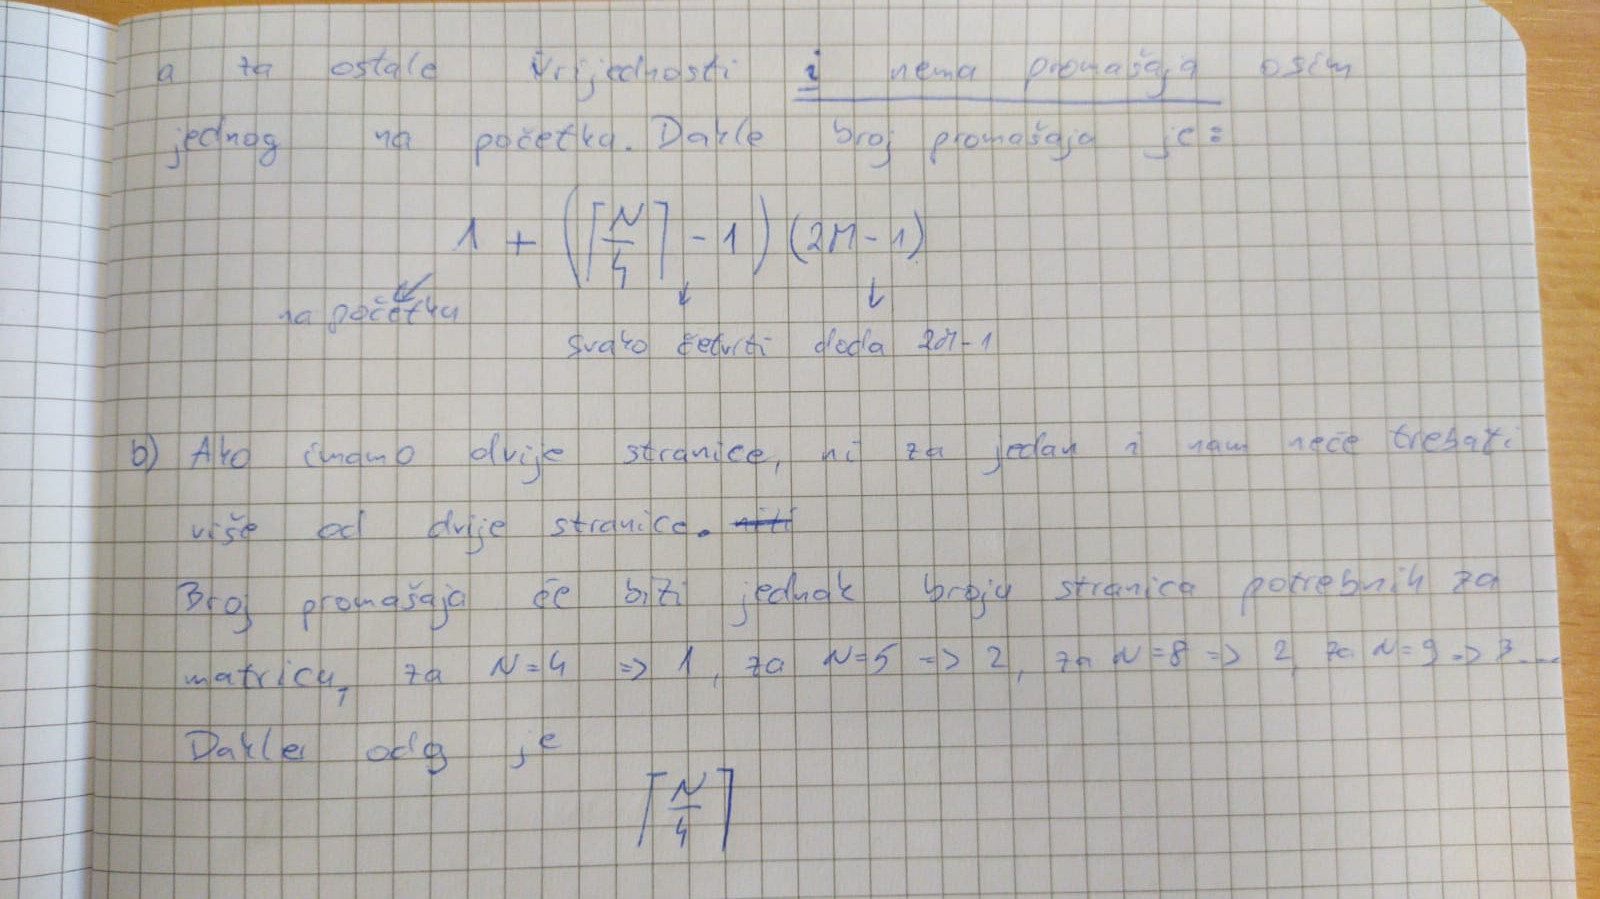 a za ostale vrijednosti i nema promašaja osim
jednog na početku. Dakle broj promašaja je:
1 + (⌈N/4⌉ - 1) (2M - 1)
na početku
svako četvrti doda 2M-1
b) Ako imamo dvije stranice, ni za jedan i nam neće trebati
više od dvije stranice. niti
Broj promašaja će biti jednak broju stranica potrebnih za
matricu, za N=4 => 1, za N=5 => 2, za N=8 => 2, za N=9 => 3...
Dakle odg je
⌈N/4⌉